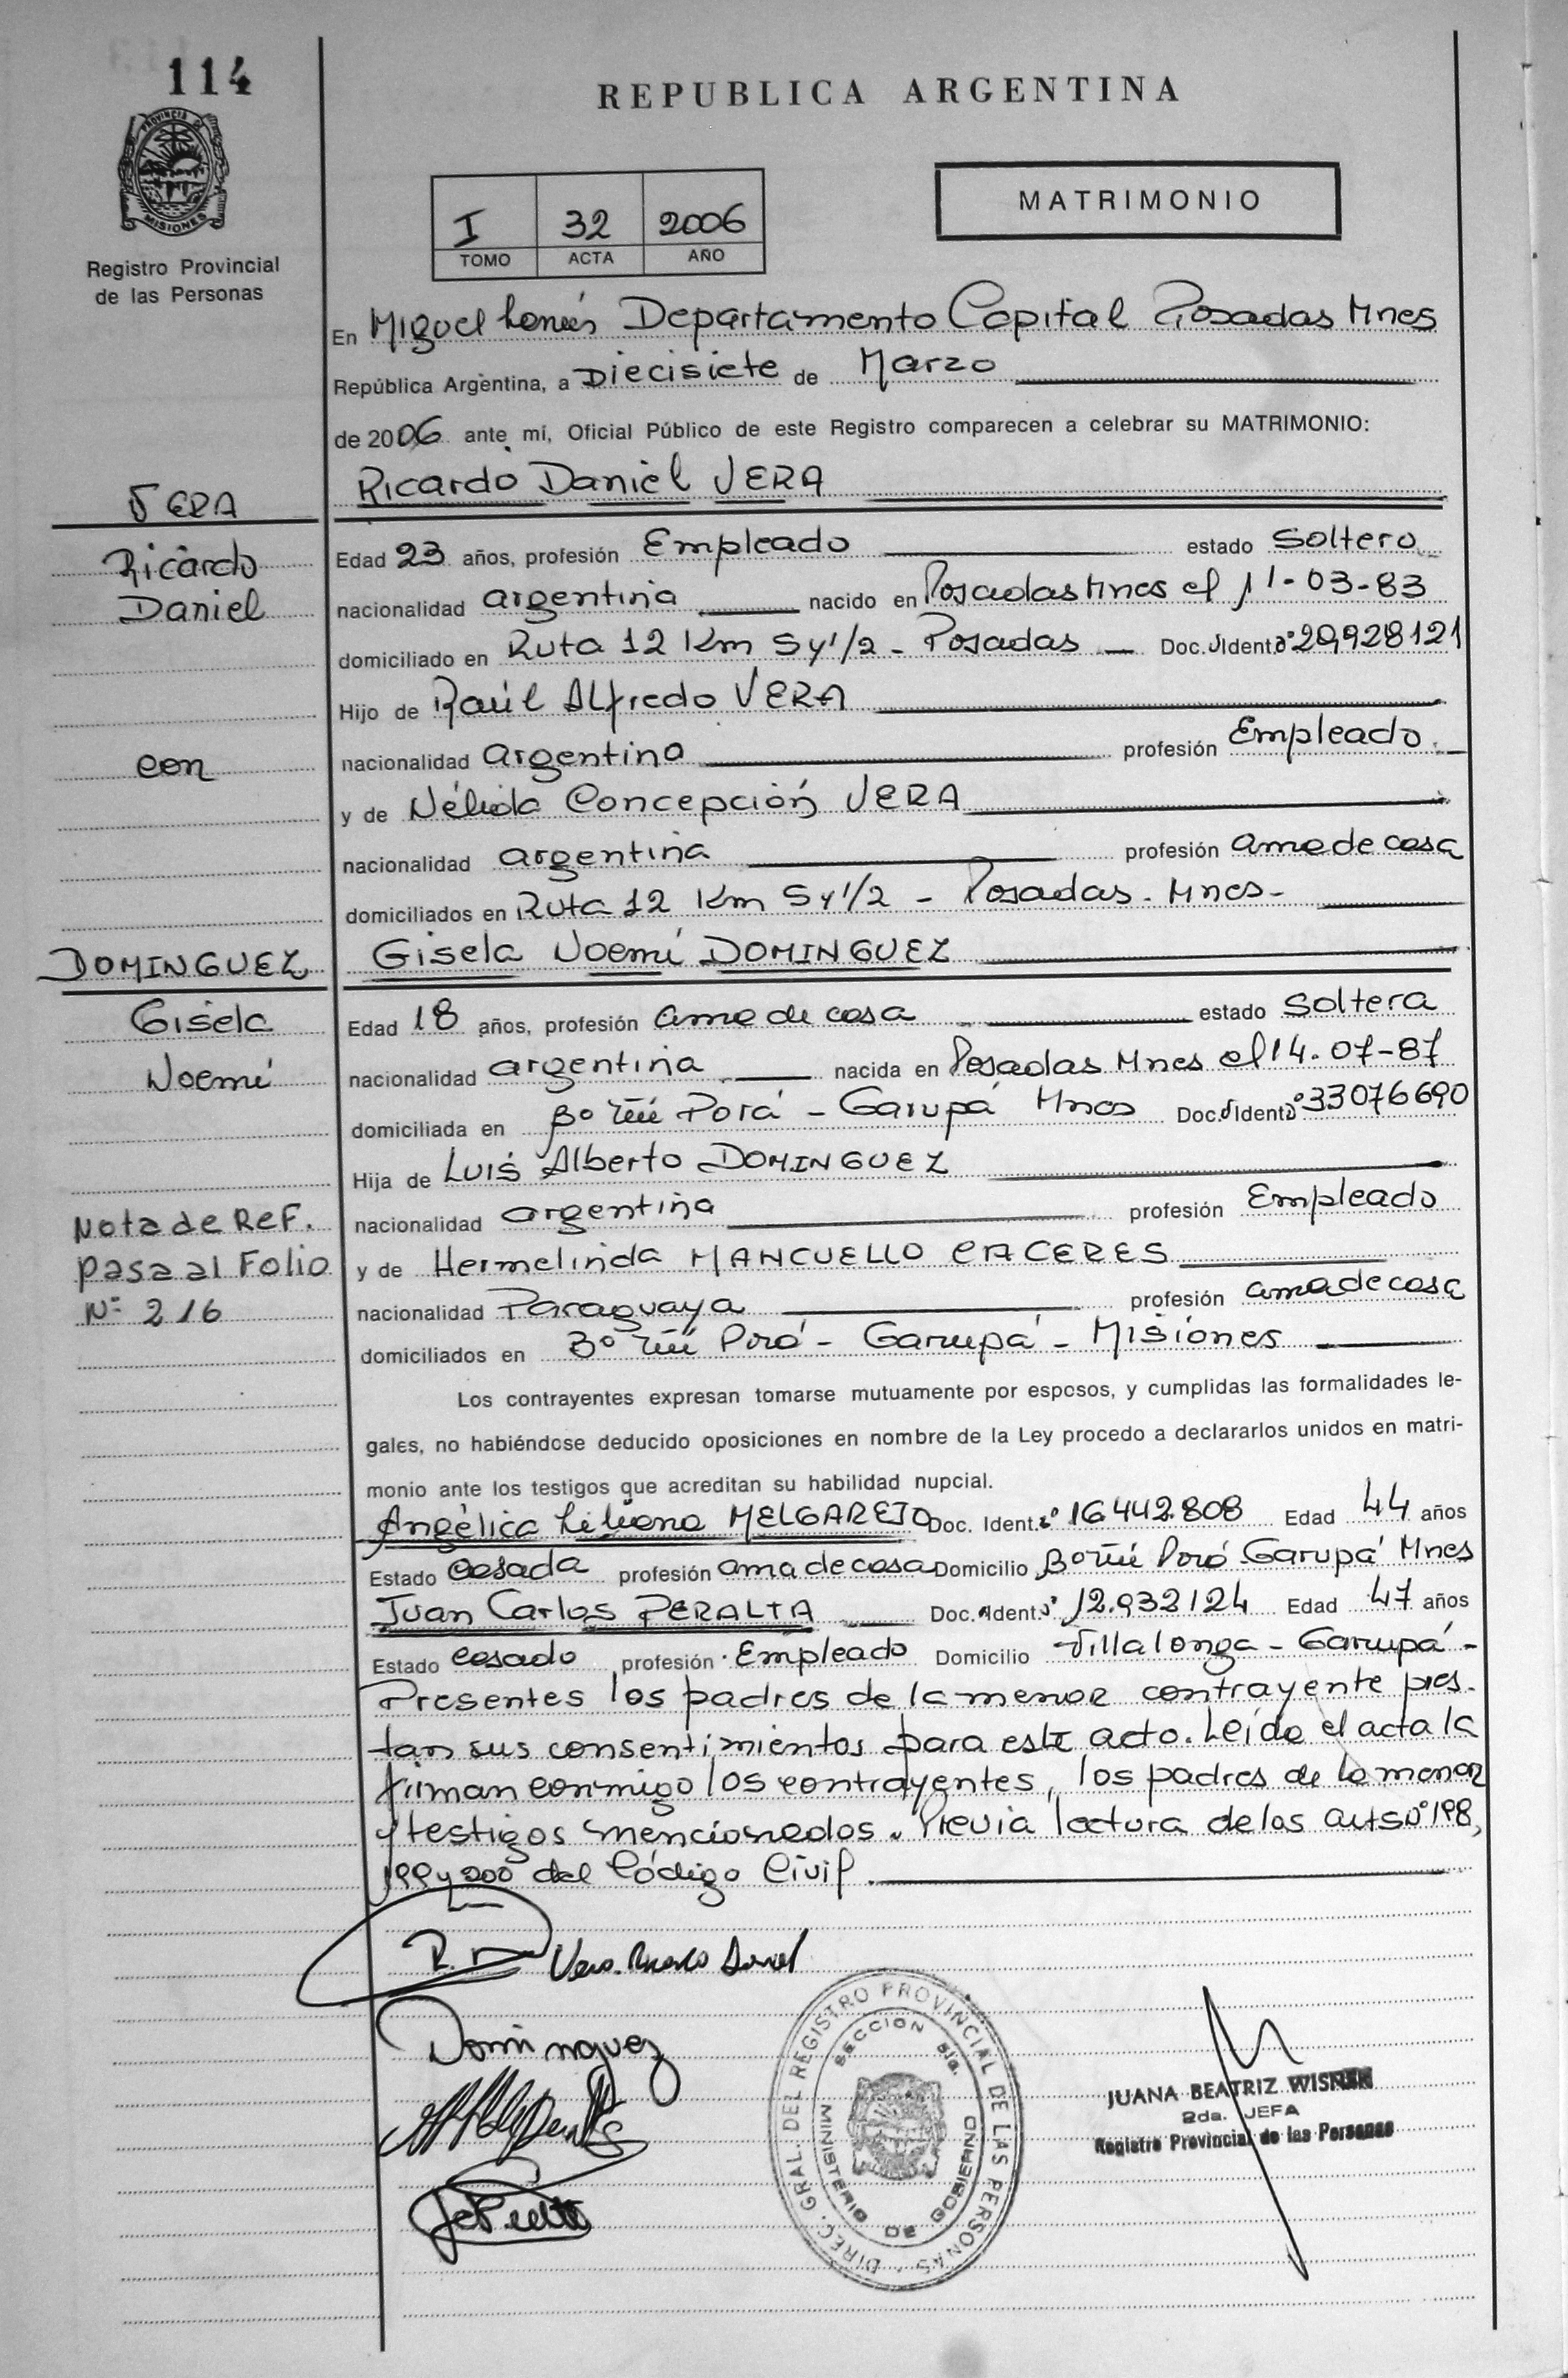 114
REPUBLICA ARGENTINA
PROVINCIA DE
MISIONES
Registro Provincial
de las Personas
I 32 2006
TOMO ACTA AÑO
MATRIMONIO
En Miguel Lanús Departamento Capital Posadas Mnes
República Argentina, a Diecisiete de Marzo
de 2006 ante mí, Oficial Público de este Registro comparecen a celebrar su MATRIMONIO:
VERA
Ricardo Daniel VERA
Ricardo
Edad 23 años, profesión Empleado estado Soltero
Daniel
nacionalidad argentina nacido en Posadas Mnes el 11-03-83
domiciliado en Ruta 12 Km 5 y 1/2 - Posadas Doc. Ident. Nº 29928121
Hijo de Raúl Alfredo VERA
con
nacionalidad argentina profesión Empleado
y de Nélida Concepción VERA
nacionalidad argentina profesión ama de casa
domiciliados en Ruta 12 Km 5 y 1/2 - Posadas - Mnes -
DOMINGUEZ
Gisela Noemí DOMINGUEZ
Gisela
Edad 18 años, profesión ama de casa estado Soltera
Noemí
nacionalidad argentina nacida en Posadas Mnes el 14-07-87
domiciliada en Bº Ñú Porá - Garupá Mnes Doc. Ident. Nº 33076690
Hija de Luis Alberto DOMINGUEZ
Nota de Ref.
nacionalidad argentina profesión Empleado
pasa al Folio
y de Hermelinda MANCUELLO CACERES
Nº 216
nacionalidad Paraguaya profesión ama de casa
domiciliados en Bº Ñú Porá - Garupá - Misiones
Los contrayentes expresan tomarse mutuamente por esposos, y cumplidas las formalidades le-
gales, no habiéndose deducido oposiciones en nombre de la Ley procedo a declararlos unidos en matri-
monio ante los testigos que acreditan su habilidad nupcial.
Angélica Liliana MELGAREJO Doc. Ident. Nº 16442.808 Edad 44 años
Estado Casada profesión ama de casa Domicilio Bº Ñú Porá Garupá Mnes
Juan Carlos PERALTA Doc. Ident. Nº 12.932124 Edad 47 años
Estado casado profesión Empleado Domicilio Villalonga - Garupá -
Presentes los padres de la menor contrayente pres-
tan sus consentimientos para este acto. Leída el acta la
firman conmigo los contrayentes, los padres de la menor
y testigos mencionados. Previa lectura de los arts Nº 198,
199 y 200 del Código Civil.
R.D Vera Ricardo Daniel
Dominguez
DIREC. GRAL. DEL REGISTRO PROVINCIAL DE LAS PERSONAS
MINISTERIO DE GOBIERNO
SECCION
JUANA BEATRIZ
2da. JEFA
Registro Provincial de las Personas